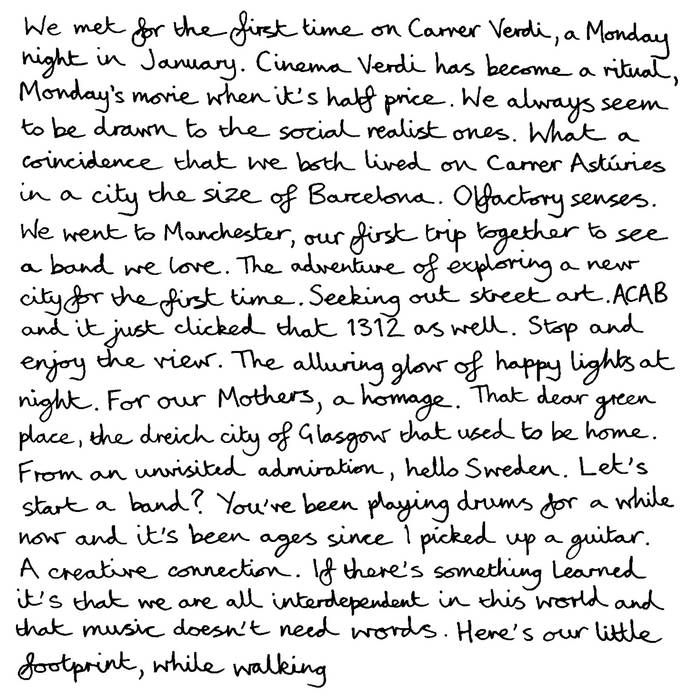 We met for the first time on Carrer Verdi, a Monday
night in January. Cinema Verdi has become a ritual,
Monday's movie when it's half price. We always seem
to be drawn to the social realist ones. What a
coincidence that we both lived on Carrer Astúries
in a city the size of Barcelona. Olfactory senses.
We went to Manchester, our first trip together to see
a band we love. The adventure of exploring a new
city for the first time. Seeking out street art. ACAB
and it just clicked that 1312 as well. Stop and
enjoy the view. The alluring glow of happy lights at
night. For our Mothers, a homage. That dear green
place, the dreich city of Glasgow that used to be home.
From an unvisited admiration, hello Sweden. Let's
start a band? You've been playing drums for a while
now and it's been ages since I picked up a guitar.
A creative connection. If there's something learned
it's that we are all interdependent in this world and
that music doesn't need words. Here's our little
footprint, while walking